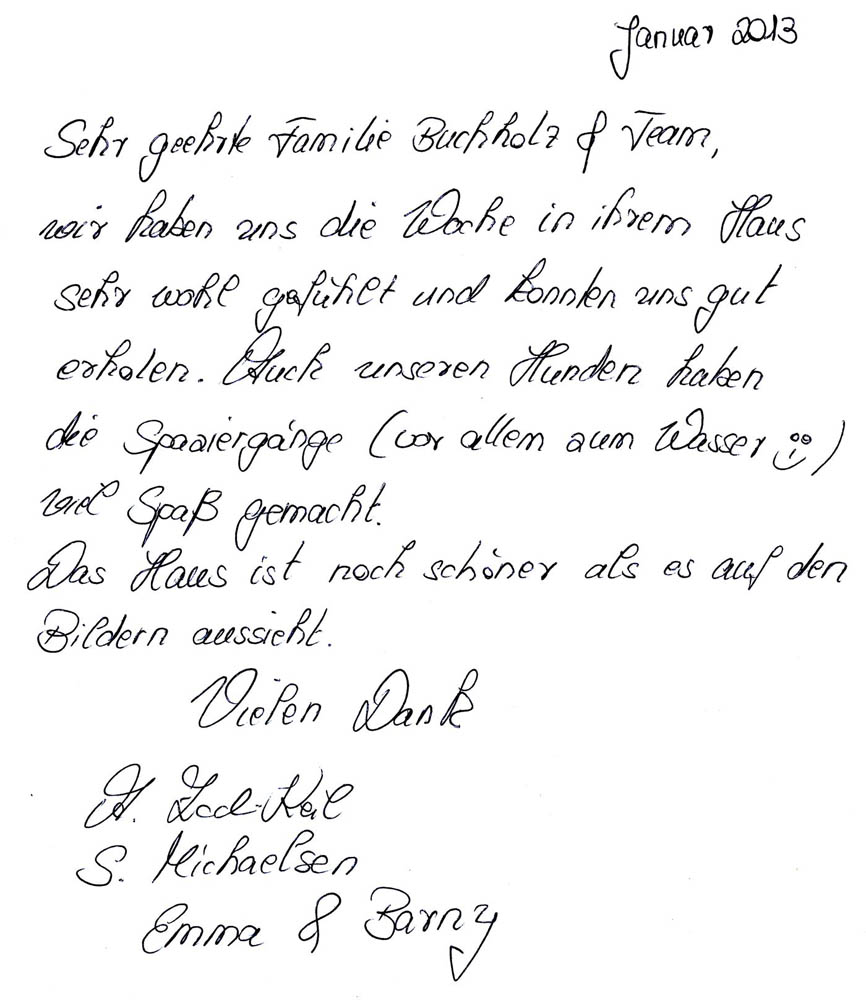 Januar 2013
Sehr geehrte Familie Buchholz & Team,
wir haben uns die Woche in ihrem Haus
sehr wohl gefühlt und konnten uns gut
erholen. Auch unseren Hunden haben
die Spaziergänge (vor allem zum Wasser ☺)
viel Spaß gemacht.
Das Haus ist noch schöner als es auf den
Bildern aussieht.
Vielen Dank
S. Michaelsen
Emma & Barny